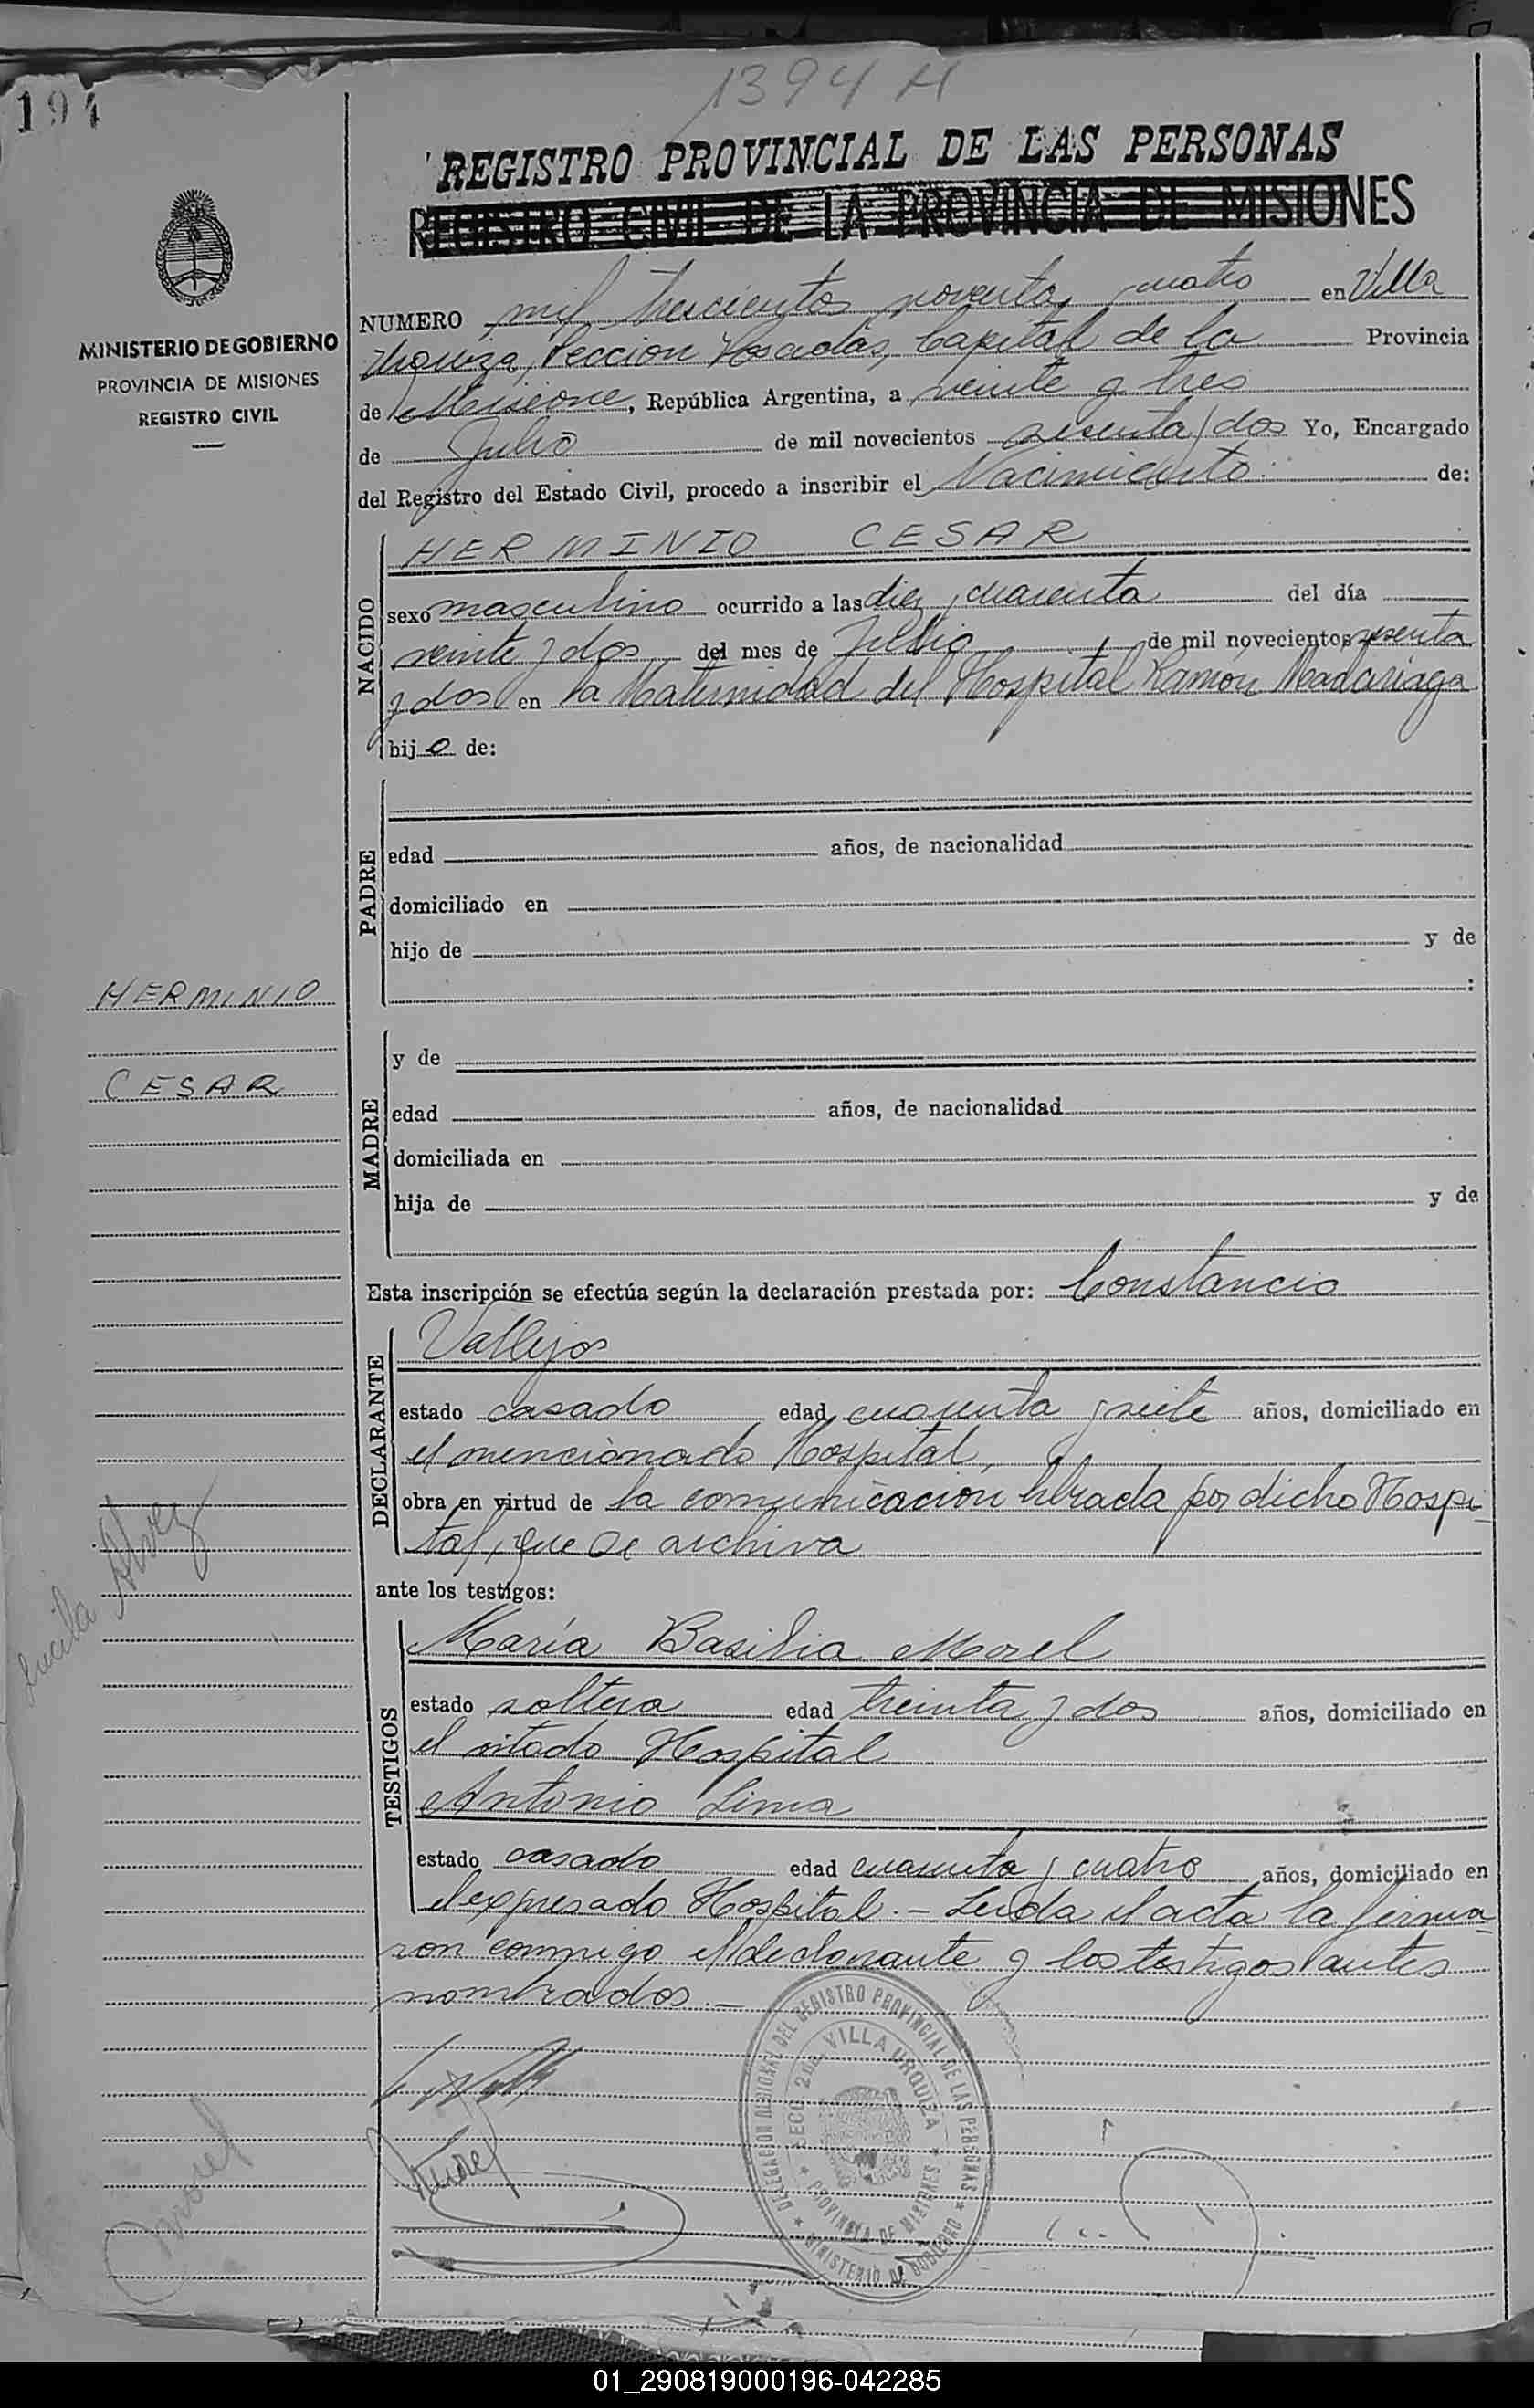 1394 H
194
REGISTRO PROVINCIAL DE LAS PERSONAS
REGISTRO CIVIL DE LA PROVINCIA DE MISIONES
MINISTERIO DE GOBIERNO
PROVINCIA DE MISIONES
REGISTRO CIVIL
NUMERO mil trescientos noventa y cuatro en Villa
Urquiza, Sección Posadas, Capital de la Provincia
de Misione, República Argentina, a veinte y tres
de Julio de mil novecientos sesenta y dos Yo, Encargado
del Registro del Estado Civil, procedo a inscribir el Nacimiento de:
NACIDO
HERMINIO CESAR
sexo masculino ocurrido a las diez y cuarenta del día
veinte y dos del mes de Julio de mil novecientos sesenta
y dos en la Maternidad del Hospital Ramón Madariaga
hijo de:
PADRE
edad años, de nacionalidad
domiciliado en
hijo de y de
:
HERMINIO
CESAR
MADRE
y de
edad años, de nacionalidad
domiciliada en
hija de y de
Esta inscripción se efectúa según la declaración prestada por: Constancio
DECLARANTE
Vallejos
estado casado edad cuarenta y siete años, domiciliado en
el mencionado Hospital,
obra en virtud de la comunicación librada por dicho Hospi-
tal, que se archiva
ante los testigos:
Lucila Alvez
TESTIGOS
María Basilia Morel
estado soltera edad treinta y dos años, domiciliado en
el citado Hospital
Antonio Lima
estado casado edad cuarenta y cuatro años, domiciliado en
el expresado Hospital.- Leída el acta la firma-
ron conmigo el declarante y los testigos antes
nombrados.-
DELEGACION REGIONAL DEL REGISTRO PROVINCIAL DE LAS PERSONAS
SECC. 2da. VILLA URQUIZA
PROVINCIA DE MISIONES
MINISTERIO DE GOBIERNO
Morel
01_290819000196-042285